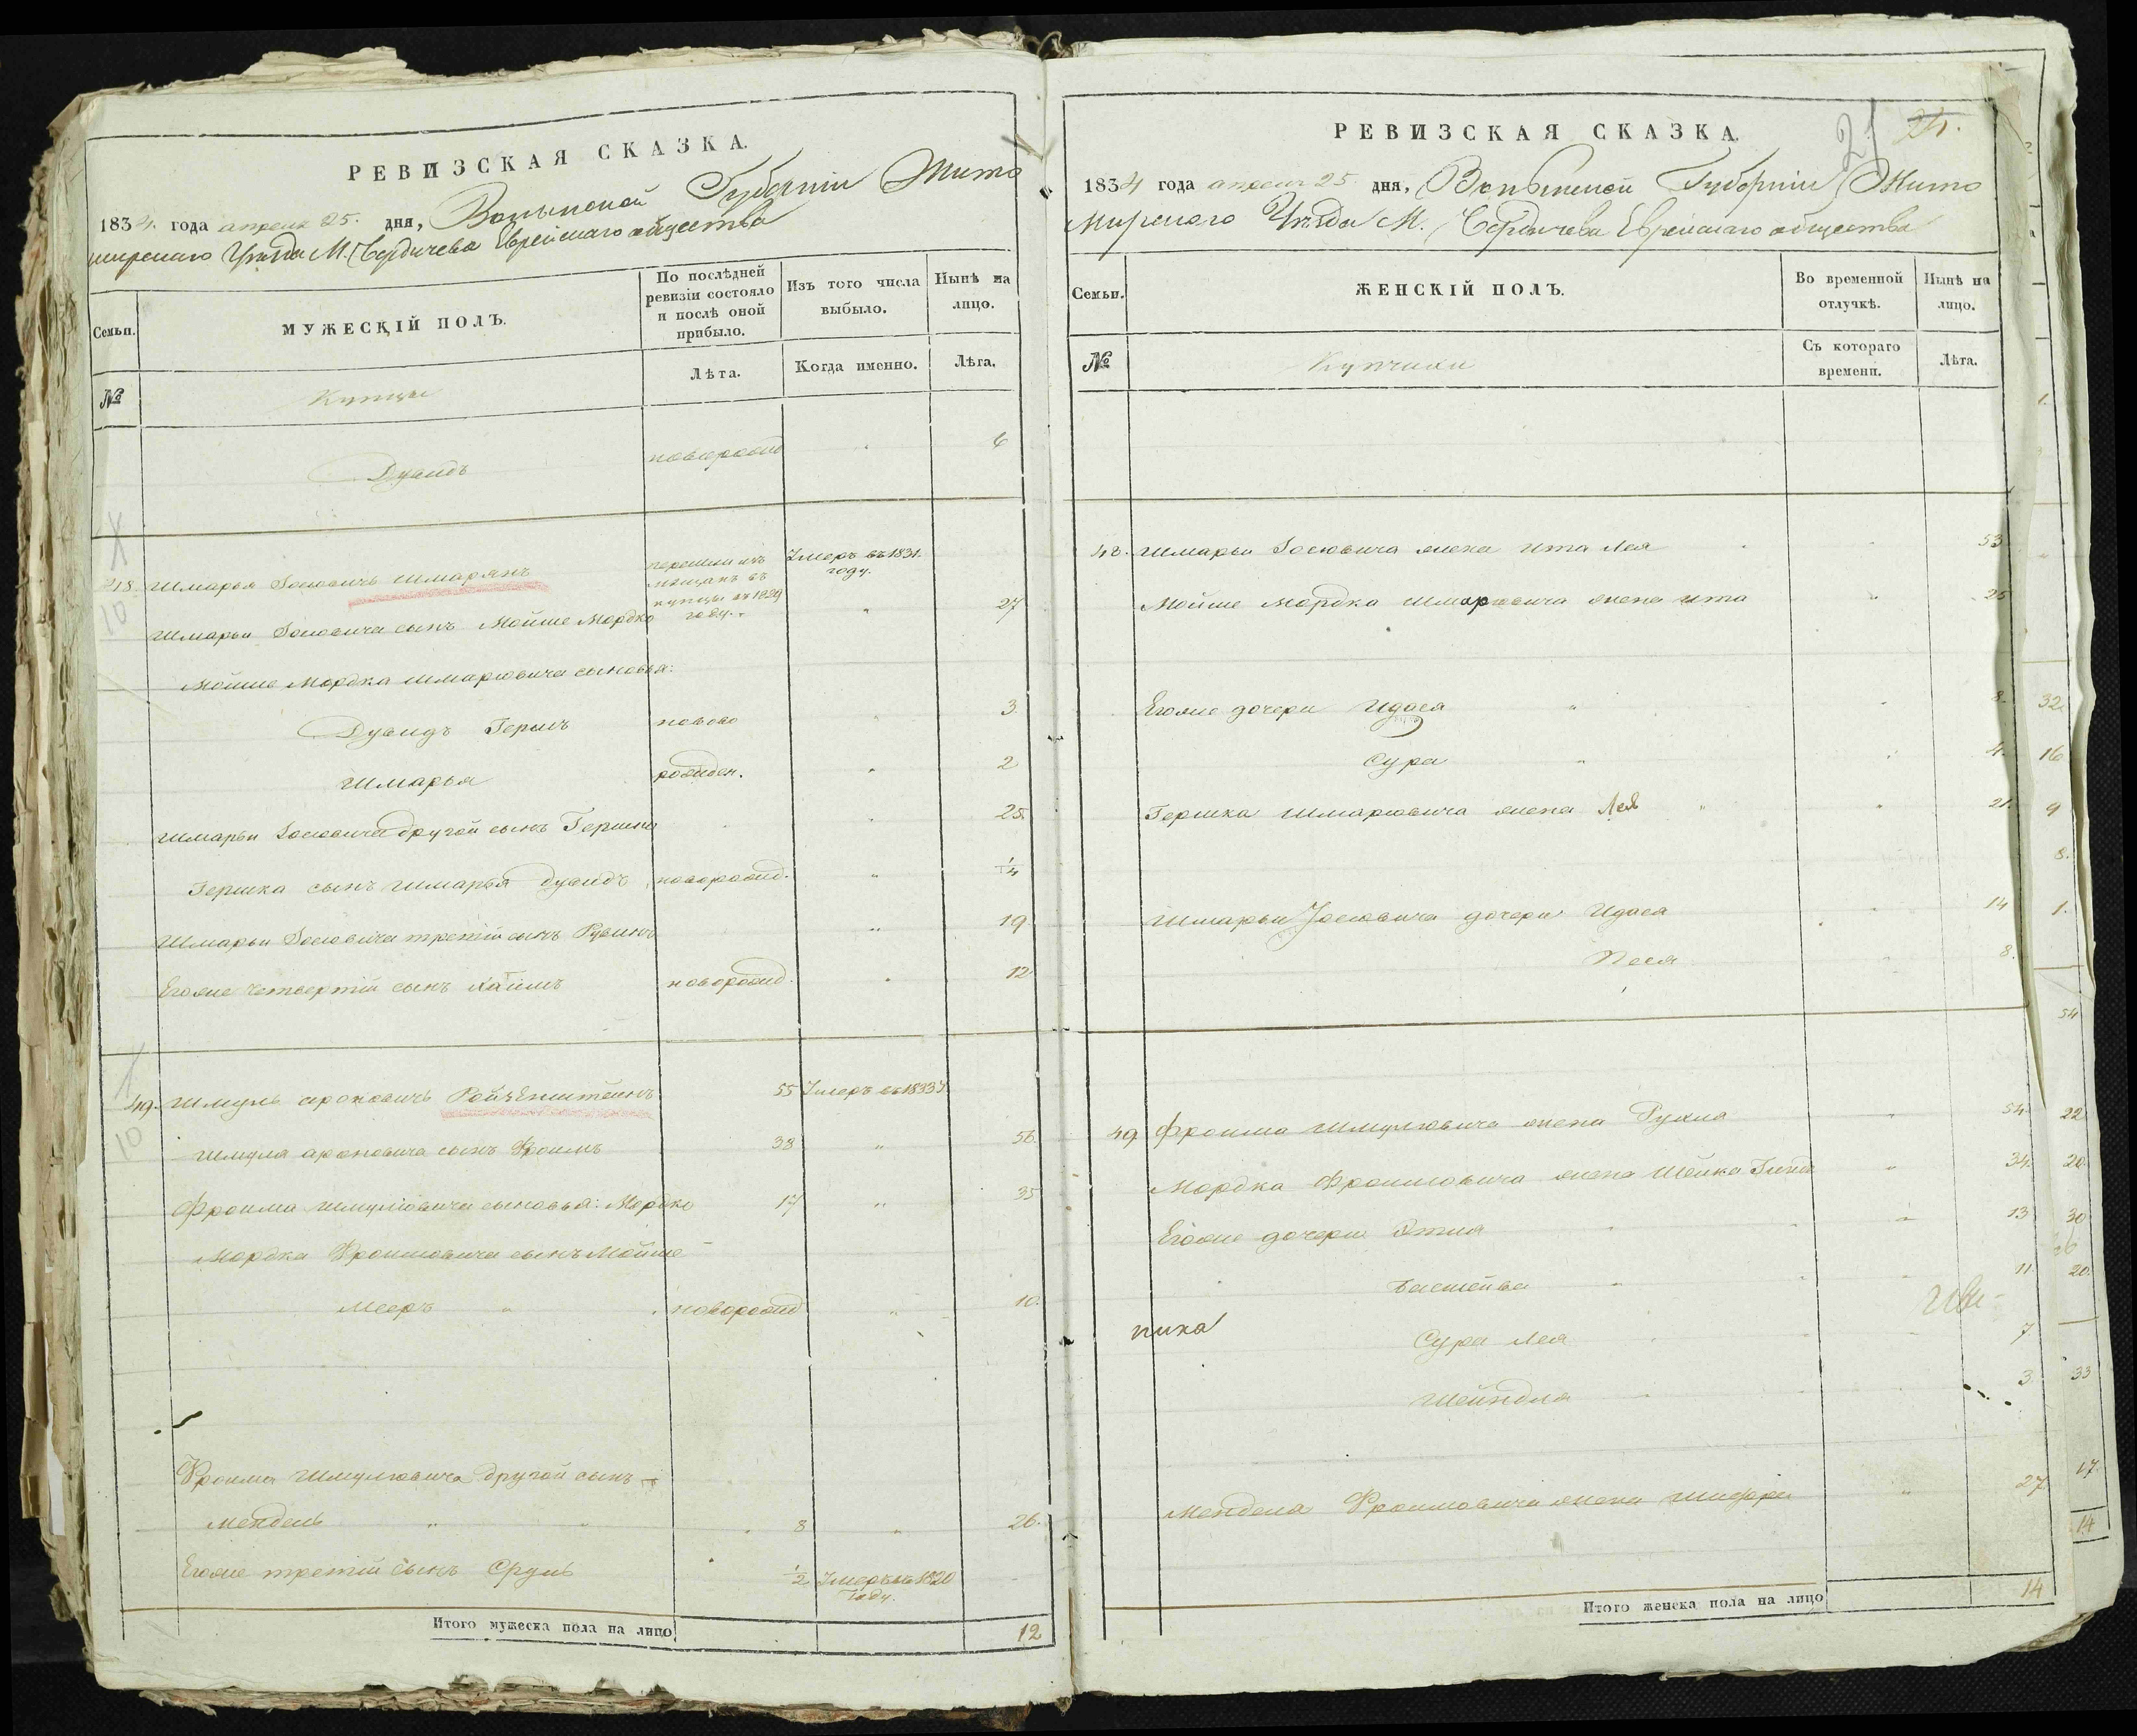 РЕВИЗСКАЯ СКАЗКА.
1834. года апреля 25. дня, Волынской Губерніи Жито
мирскаго Уѣзда М. Бердичева Еврейскаго общества
Семьи.
МУЖЕСКІЙ ПОЛЪ.
По послѣдней ревизіи состояло и послѣ оной прибыло.
Изъ того числа выбыло.
Нынѣ на лицо.
№
Купцы
Лѣта.
Когда именно.
Лѣта.
Дувидъ новорожд " 6
48. Шмарья Іосіовичъ Шмарянъ перешли изъ мещанъ въ купцы въ 1829 году. Умеръ въ 1831. году.
10
Шмарьи Іосіовича сынъ Мойше Мордко " 27
Мойше Мордка Шмаріовича сыновья:
Дувидъ Гершъ новово " 3
Шмарья рожден. " 2
Шмарьи Іосіовича другой сынъ Гершко " 25.
Гершка сынъ Шмарья Дувидъ новорожд. " 1/4
Шмарьи Іосіовича третій сынъ Рувинъ " 19
Егоже четвертій сынъ Хаимъ новорожд. " 12
49. Шмуль Ароновичъ Ройзенштейнъ 55 Умеръ въ 1833 г.
10
Шмуля Ароновича сынъ Фроимъ 38 " 56.
Фроима Шмуліовича сыновья: Мордко 17 " 35
Мордка Фроимовича сынъ Мойше
Мееръ " новорожд " 10.
Фроима Шмуліовича другой сынъ
Мендель " " 8 " 26.
Егоже третій сынъ Сруль 1/2 Умеръ въ 1820 году.
Итого мужеска пола на лицо 12
РЕВИЗСКАЯ СКАЗКА.
21 24.
1834 года апреля 25 дня, Волынской Губерніи Жито
мирскаго Уѣзда М. Бердичева Еврейскаго общества
Семьи.
ЖЕНСКІЙ ПОЛЪ.
Во временной отлучкѣ.
Нынѣ на лицо.
№
Купчихи
Съ котораго времени.
Лѣта.
48. Шмарьи Іосіовича жена Ита Лея " 53
Мойше Мордка Шмаріовича жена Ита " 25
Егоже дочери Идася " " 8.
Сура " " 4.
Гершка Шмаріовича жена Лея " " 21.
Шмарьи Іосіовича дочери Идася " 14
Песя " 8.
49 Фроима Шмуліовича жена Рухля " 54.
Мордка Фроимовича жена Шейка " 34.
Егоже дочери Этля " " 13
" " 11.
Сура Лея " 7
Шейндля " 3
Менделя Фроимовича жена Шифра " 27.
Итого женска пола на лицо 14
1.
32.
16
9
8.
1.
54
22
20.
30
20.
33
17.
14